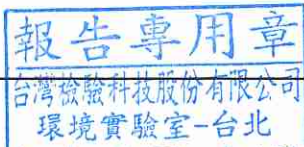 報告專用章
台灣檢驗科技股份有限公司
環境實驗室-台北